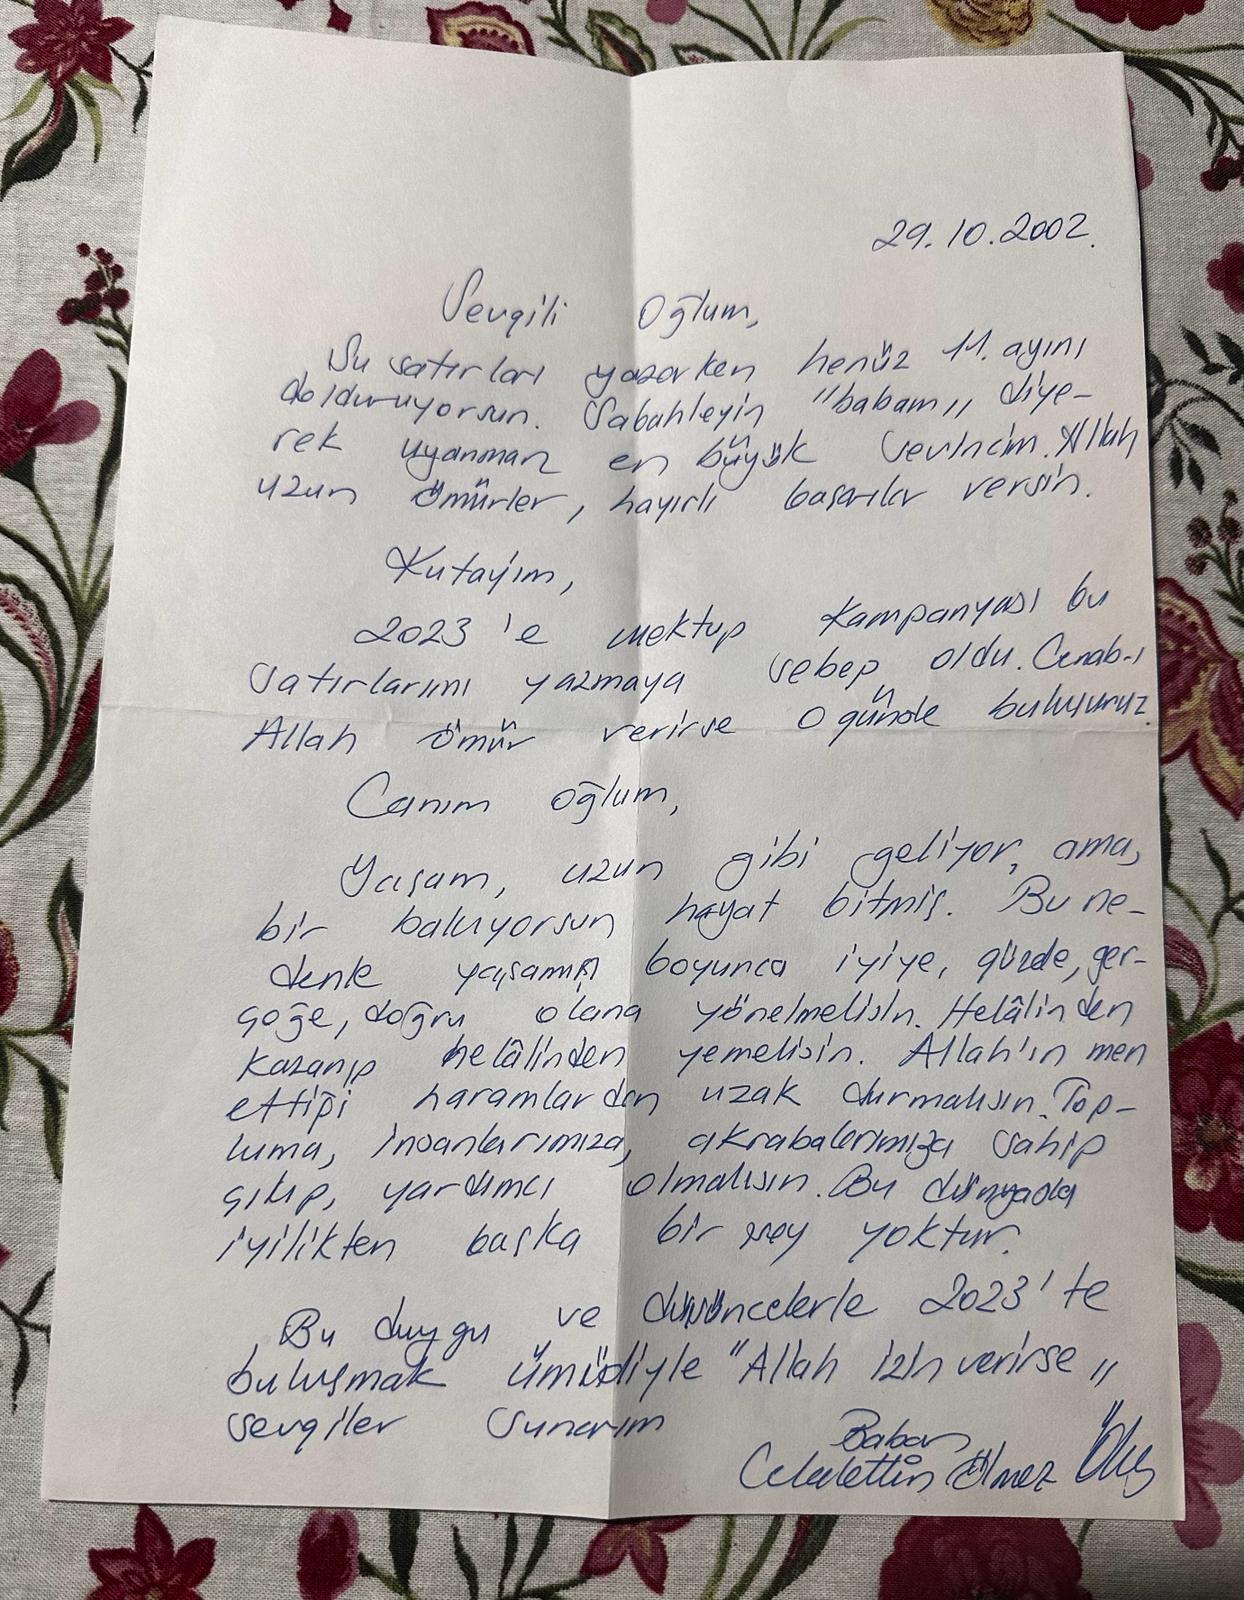 29.10.2002.
Sevgili Oğlum,
Şu satırları yazarken henüz 11. ayını
dolduruyorsun. Sabahleyin "babam" diye-
rek uyanman en büyük sevincim. Allah
uzun ömürler, hayırlı başarılar versin.
Kutayım,
2023'e mektup kampanyası bu
satırlarımı yazmaya sebep oldu. Cenab-ı
Allah ömür verirse o günde buluşuruz.
Canım oğlum,
Yaşam, uzun gibi geliyor, ama,
bir bakıyorsun hayat bitmiş. Bu ne-
denle yaşamın boyunca iyiye, güzele, ger-
çeğe, doğru olana yönelmelisin. Helâlinden
kazanıp helâlinden yemelisin. Allah'ın men
ettiği haramlardan uzak durmalısın. Top-
luma, insanlarımıza, akrabalarımıza sahip
çıkıp, yardımcı olmalısın. Bu dünyada
iyilikten başka bir şey yoktur.
Bu duygu ve düşüncelerle 2023'te
buluşmak ümüdiyle "Allah izin verirse"
sevgiler sunarım
Baban
Celalettin Ölmez